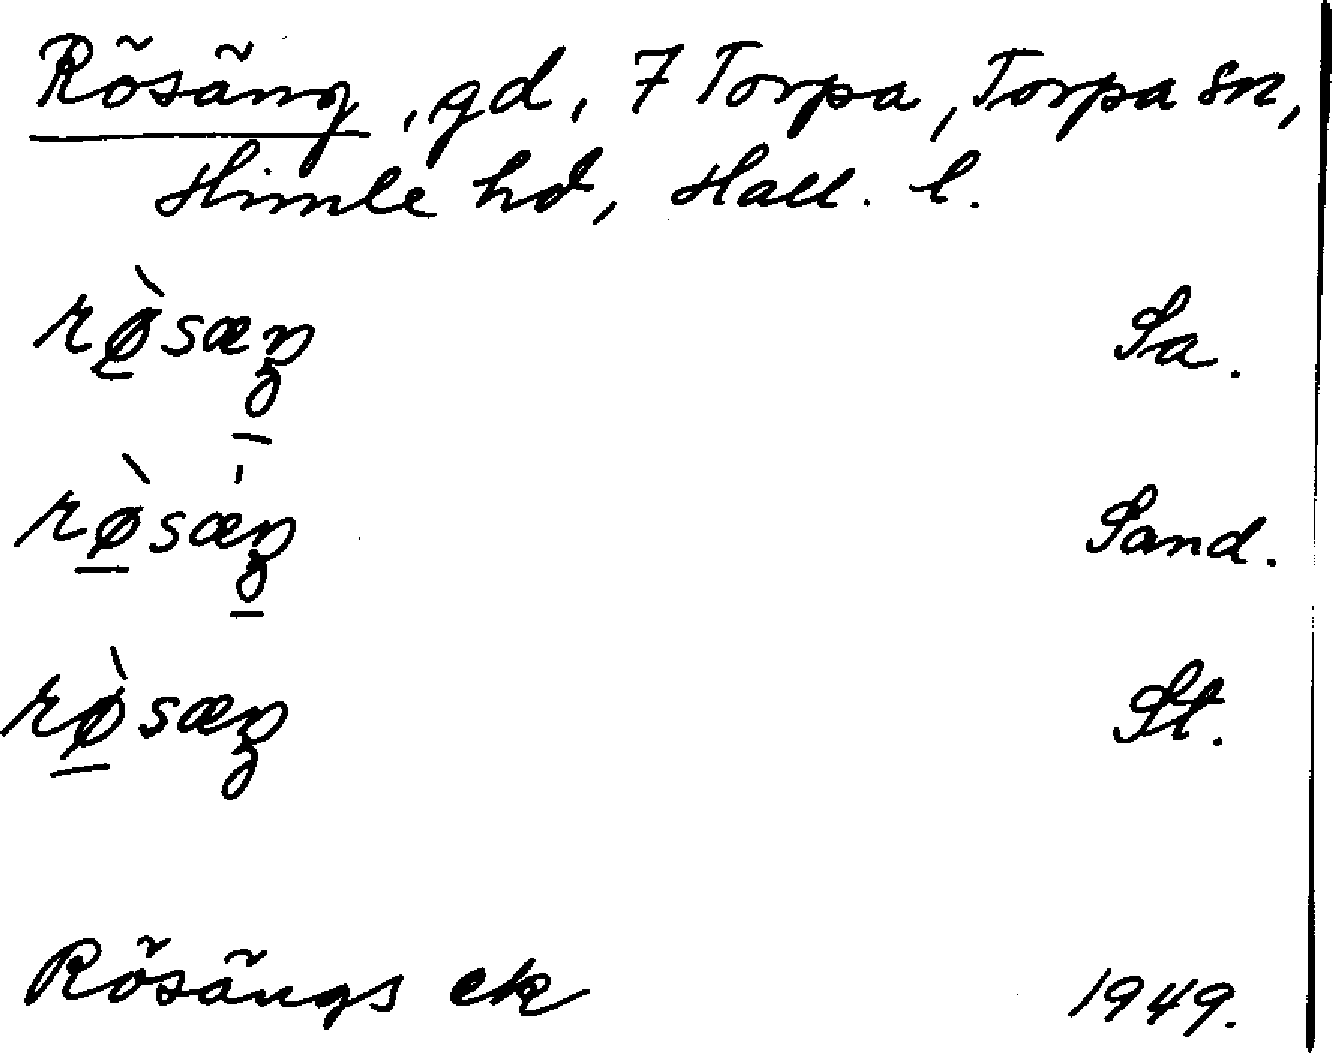 Rösäng, gd, 7 Torpa, Torpa sn,
Himle hd, Hall. l.
rø̀sæŋ Sa.
rø̀sæŋ Sand.
rø̀sæŋ St.
Rösängs ek 1949.